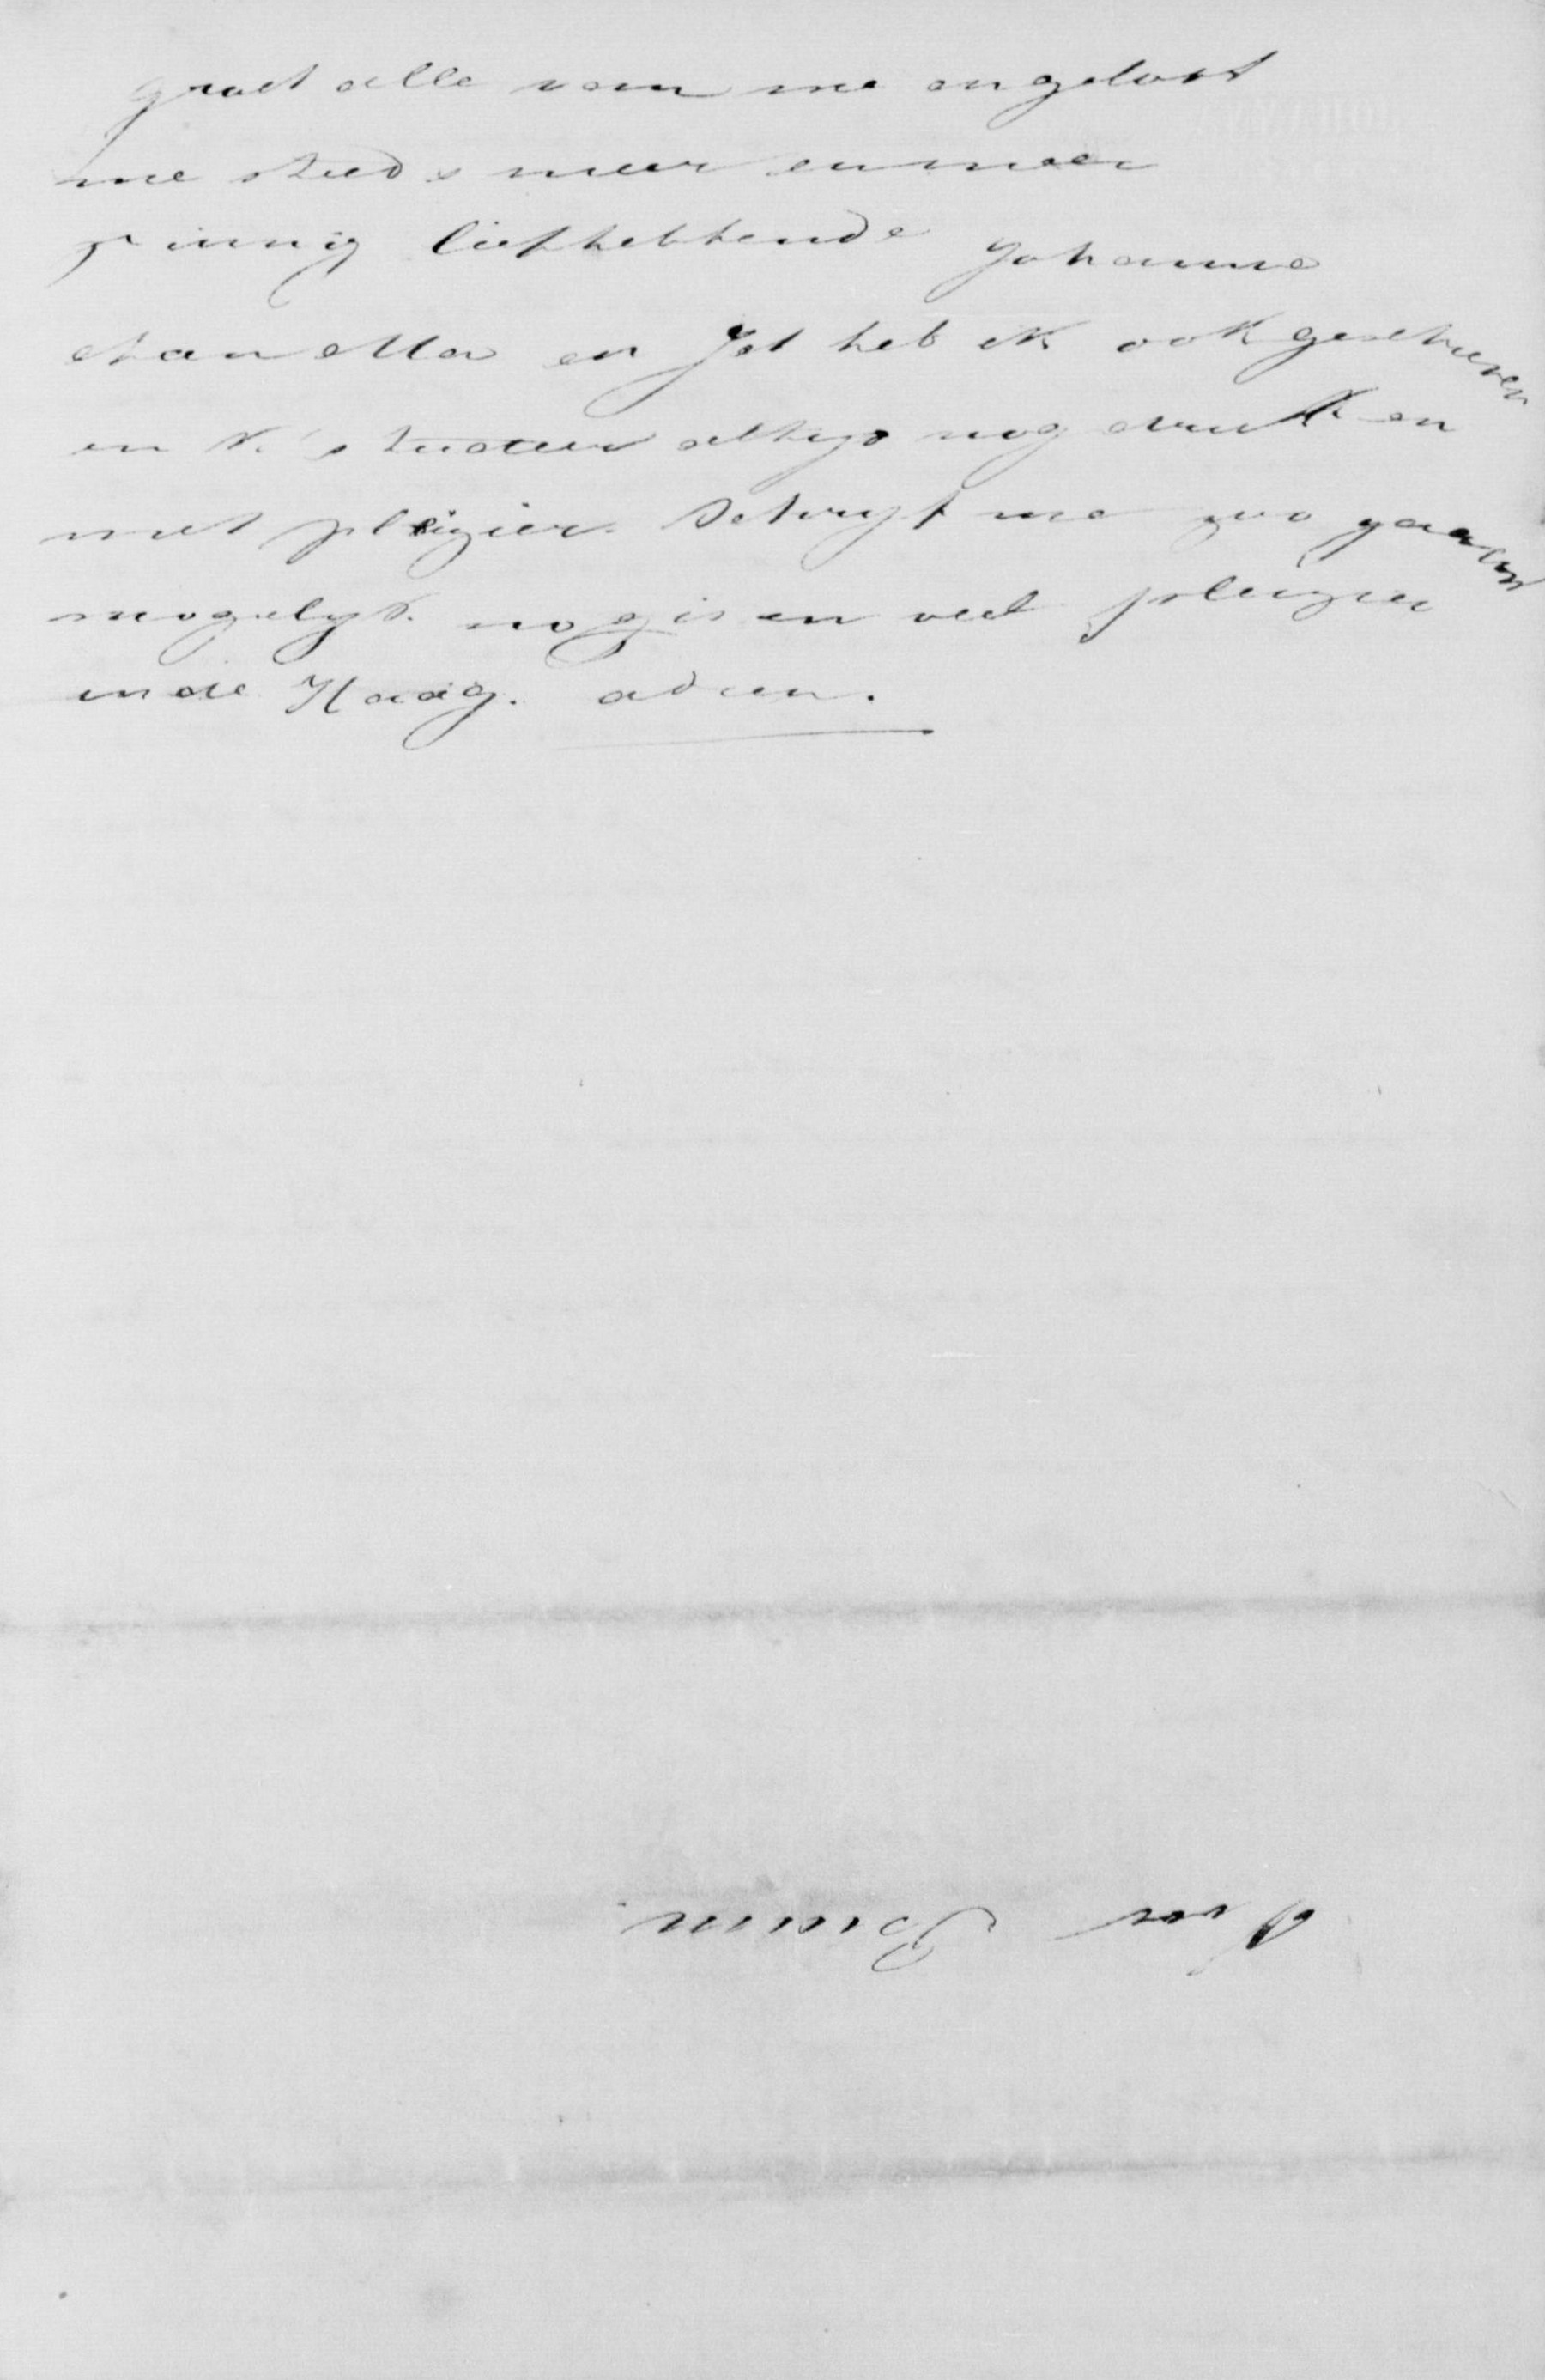 groet alle van me en geloof
me steeds meer en meer
innig liefhebbende Johanna
Aan Ma en Jet heb ik ook geschreven
en k studeer altijd nog druk en
met pleizier. Schryf me zoo gauw
mogelyk. nog is en veel pleizier
in de Haag. adieu.
Voor